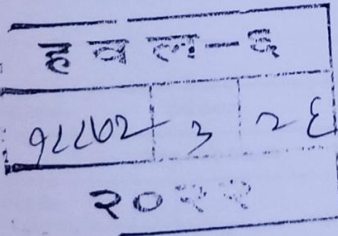 हवल-६
१८८७२ ३ २६
२०२२